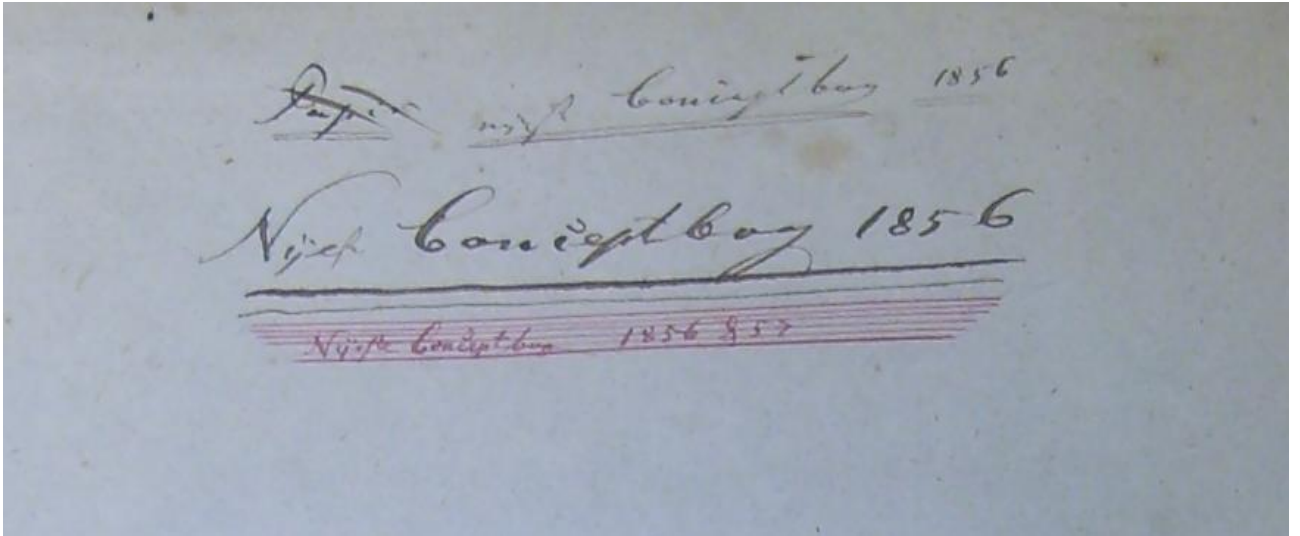 nyest Conceptbog 1856
Nyest Conceptbog 1856
Nyeste Conceptbog 1856 & 57